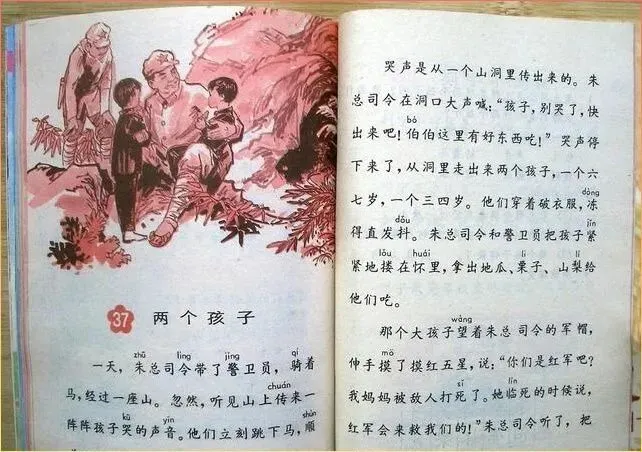 37 两个孩子
zhū lìng jǐng qí
一天，朱总司令带了警卫员，骑着
chuán
马，经过一座山。忽然，听见山上传来一
kū yīn shùn
阵阵孩子哭的声音。他们立刻跳下马，顺
哭声是从一个山洞里传出来的。朱
总司令在洞口大声喊：“孩子，别哭了，快
bó
出来吧！伯伯这里有好东西吃！”哭声停
下来了，从洞里走出来两个孩子，一个六
dòng
七岁，一个三四岁。他们穿着破衣服，冻
dǒu jǐn
得直发抖。朱总司令和警卫员把孩子紧
lǒu huái lì
紧地搂在怀里，拿出地瓜、栗子、山梨给
他们吃。
wàng
那个大孩子望着朱总司令的军帽，
mō
伸手摸了摸红五星，说：“你们是红军吧？
sǐ lín
我妈妈被敌人打死了。她临死的时候说，
红军会来救我们的！”朱总司令听了，把